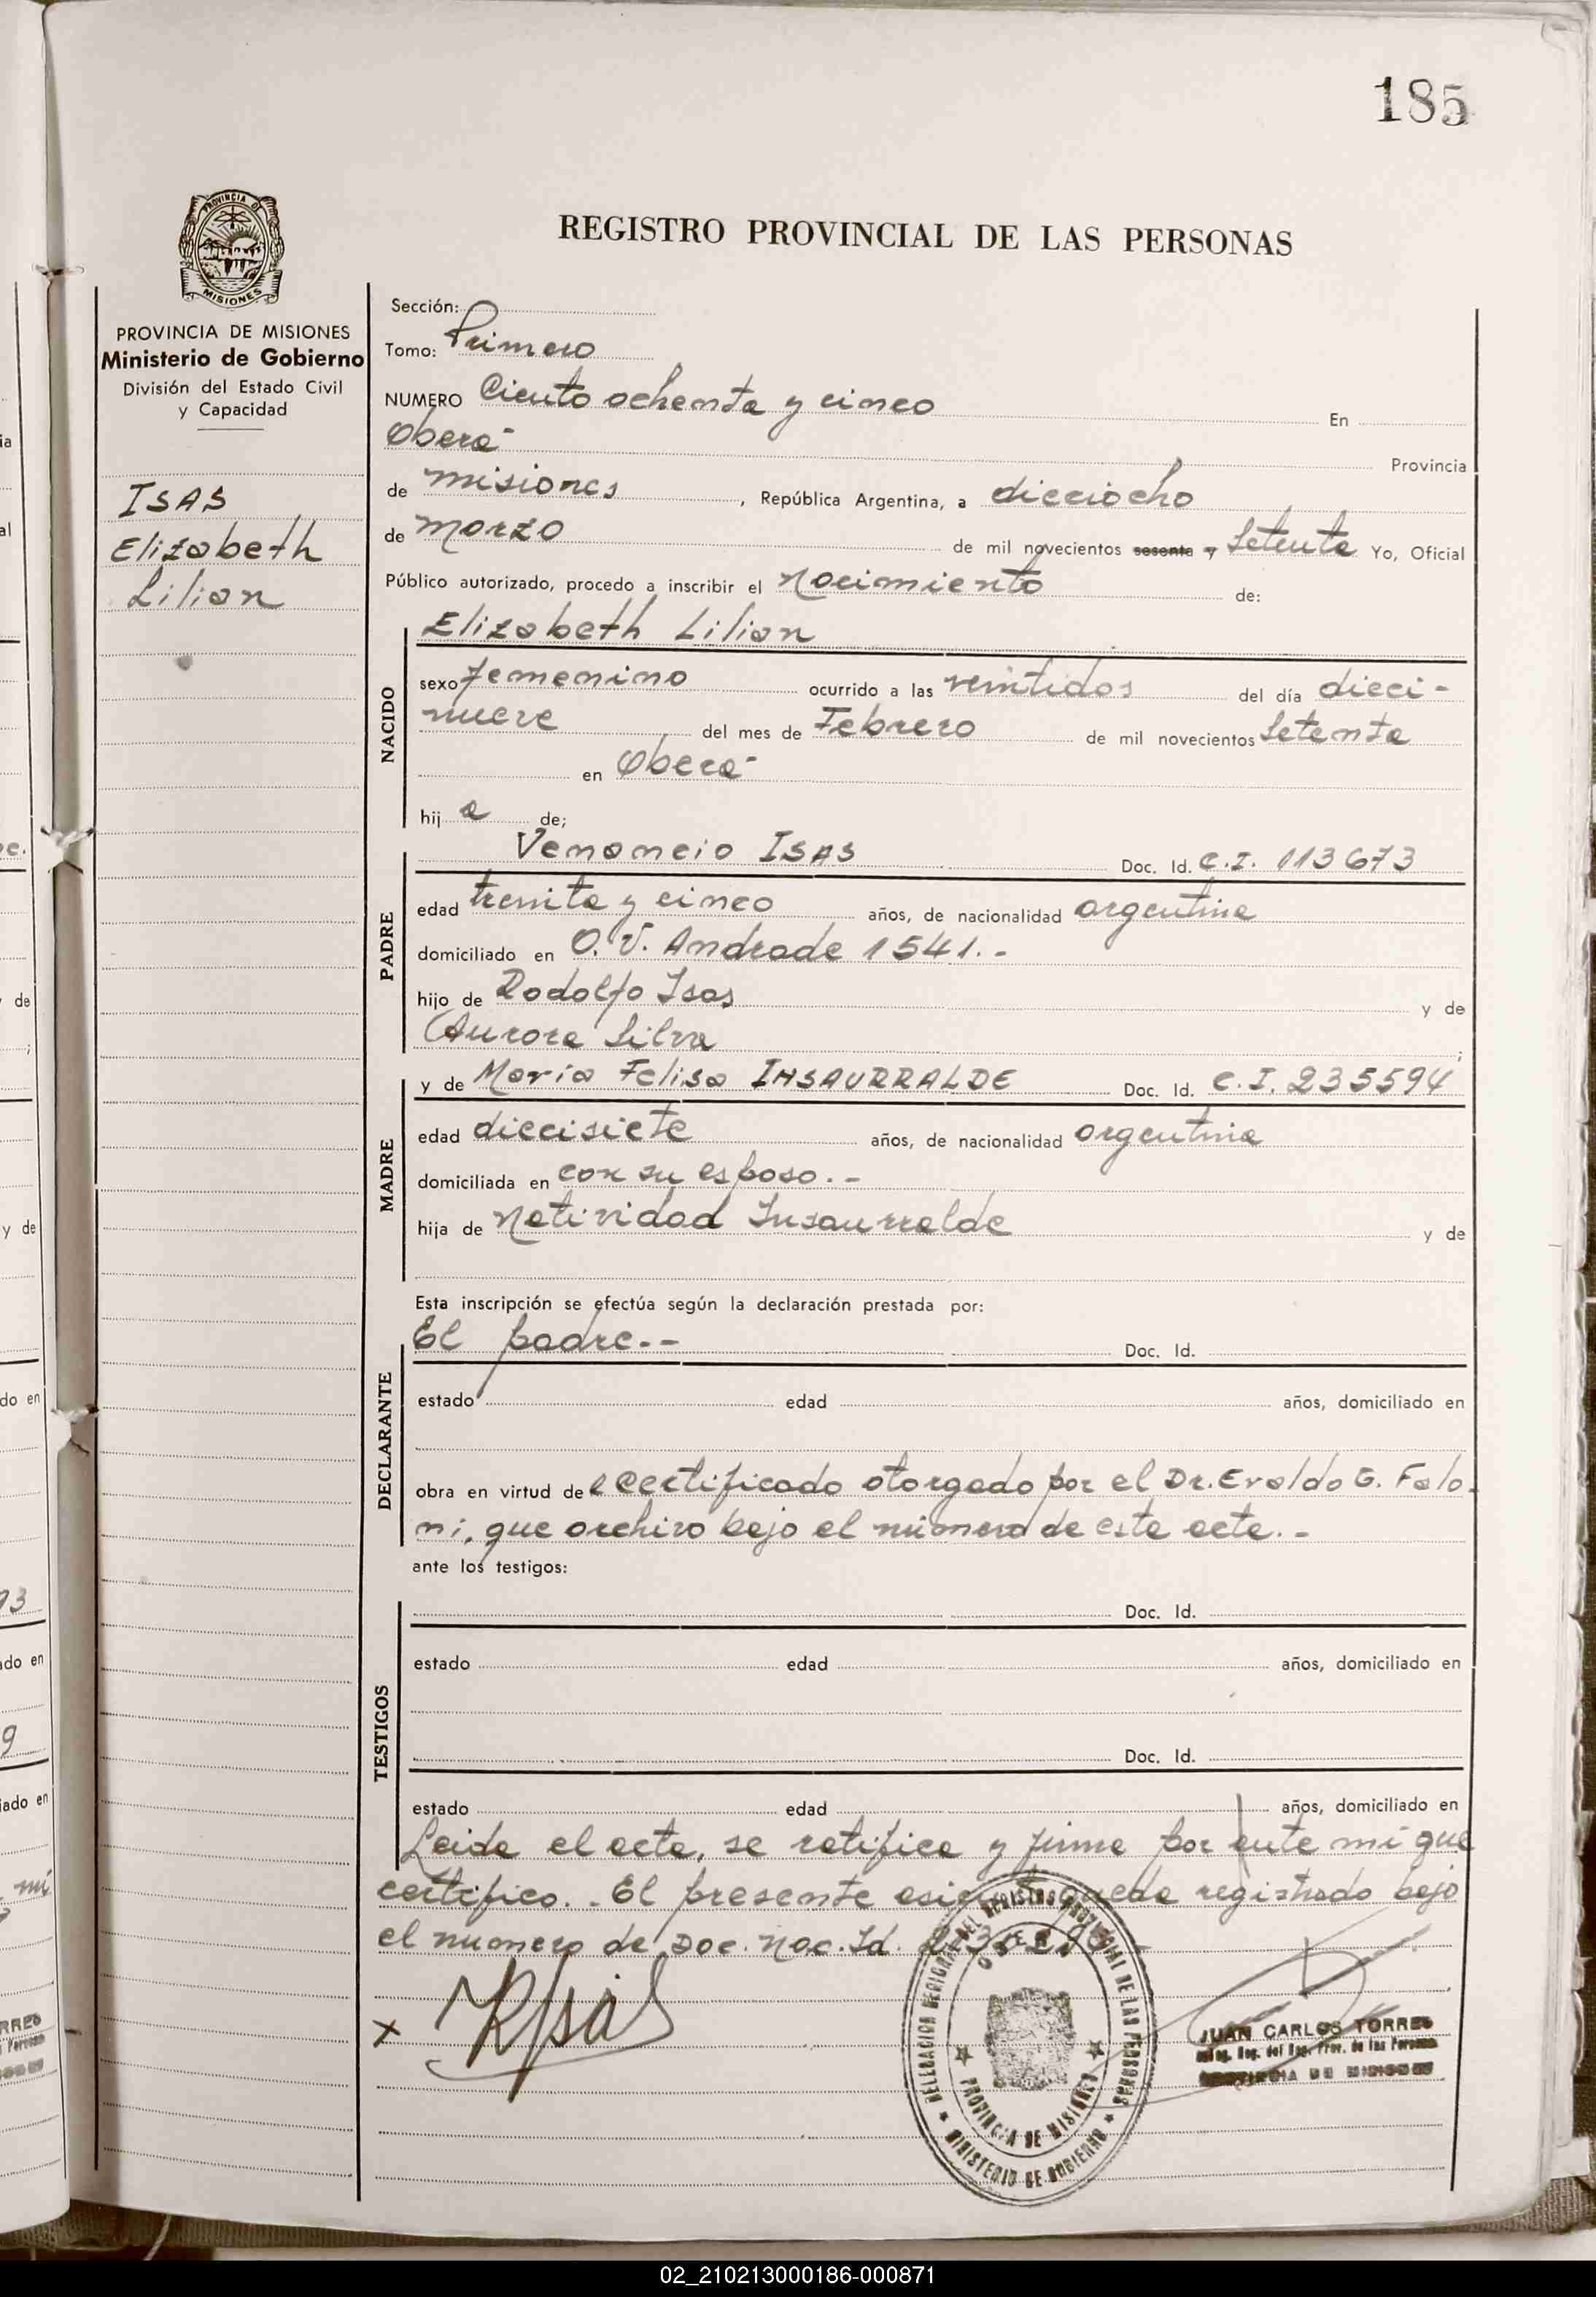 185
PROVINCIA DE
MISIONES
REGISTRO PROVINCIAL DE LAS PERSONAS
PROVINCIA DE MISIONES
Ministerio de Gobierno
División del Estado Civil
y Capacidad
ISAS
Elizabeth
Lilian
Sección:
Tomo: Primero
NUMERO Ciento ochenta y cinco En
Oberá Provincia
de misiones, República Argentina, a dieciocho
de marzo de mil novecientos sesenta y setenta Yo, Oficial
Público autorizado, procedo a inscribir el nacimiento de:
Elizabeth Lilian
NACIDO
sexo femenino ocurrido a las veintidos del día dieci-
nueve del mes de Febrero de mil novecientos setenta
en Oberá
hija de;
PADRE
Venancio ISAS Doc. Id. C.I. 113673
edad treinta y cinco años, de nacionalidad argentina
domiciliado en O. V. Andrade 1541.-
hijo de Rodolfo Isas y de
Aurora Silva ;
MADRE
y de María Felisa INSAURRALDE Doc. Id. C.I. 235594
edad diecisiete años, de nacionalidad argentina
domiciliada en con su esposo.-
hija de Natividad Insaurralde y de
Esta inscripción se efectúa según la declaración prestada por:
DECLARANTE
El padre.- Doc. Id.
estado edad años, domiciliado en
obra en virtud del certificado otorgado por el Dr. Evaldo G. Falo-
ni, que archivo bajo el número de este acta.-
ante los testigos:
TESTIGOS
Doc. Id.
estado edad años, domiciliado en
Doc. Id.
estado edad años, domiciliado en
Leida el acta, se ratifica y firma por ante mi que
certifico.. El presente queda registrado bajo
el numero de Doc. Nac. Id.
x
DELEGACION DEL REGISTRO PROVINCIAL DE LAS PERSONAS
PROVINCIA DE MISIONES
MINISTERIO DE GOBIERNO
JUAN CARLOS TORRES
Reg. del Reg. Prov. de las Personas
PROVINCIA DE MISIONES
02_210213000186-000871